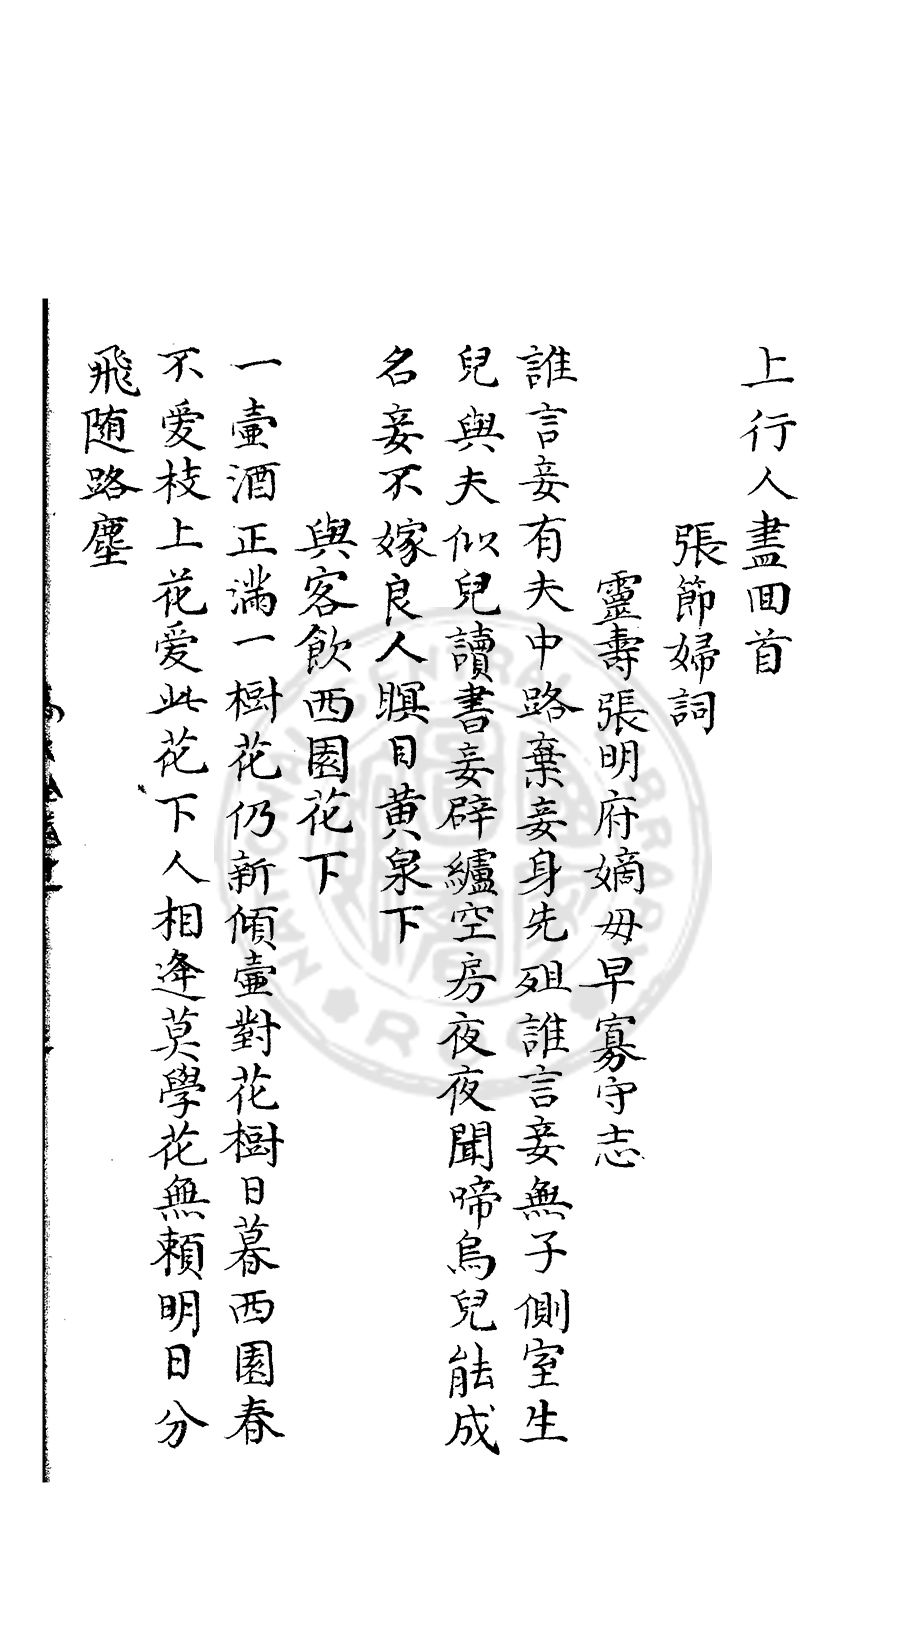 上行人盡囬首
張節婦詞
靈壽張明府嫡毋早寡守志
誰言妾有夫中路棄妾身先殂誰言妾無子側室生
兒與夫似兒讀書妾辟纑空房夜夜聞啼烏兒能成
名妾不嫁良人瞑目黄泉下
與客飲西園花下
一壷酒正滿一樹花仍新傾壷對花樹日暮西園春
不愛枝上花爱此花下人相逢莫學花無賴明日分
飛随路塵